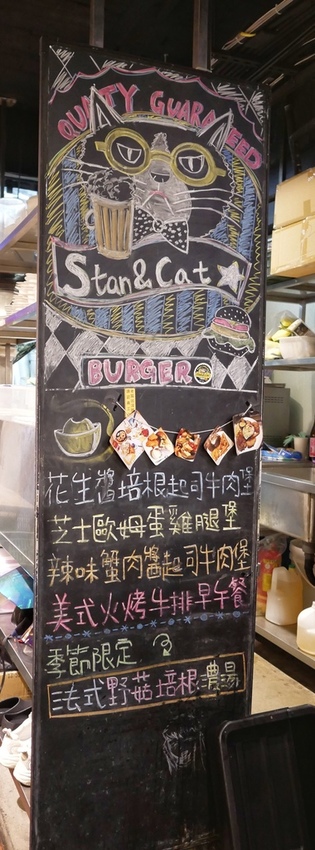 QUALITY GUARANTEED
Stan & Cat
BURGER
花生醬培根起司牛肉堡
芝士歐姆蛋雞腿堡
辣味蟹肉醬起司牛肉堡
美式火烤牛排早午餐
季節限定
法式野菇培根濃湯